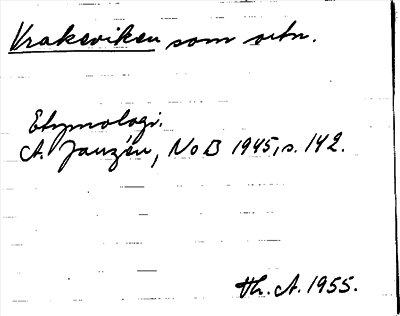 Vraksviken som ortn.
Etymologi.
A. Janzén, NoB 1945, s. 142.
Th. A. 1955.